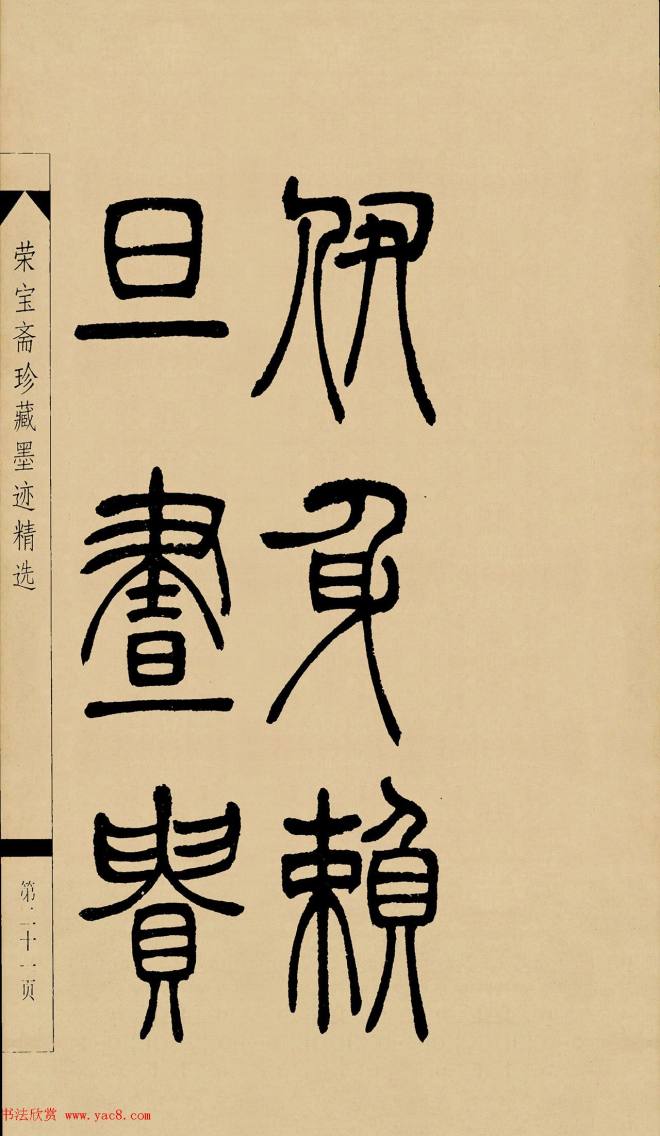 伊身賴
旦晝貴
荣宝斋珍藏墨迹精选
第二十一页
书法欣赏 www.yac8.com